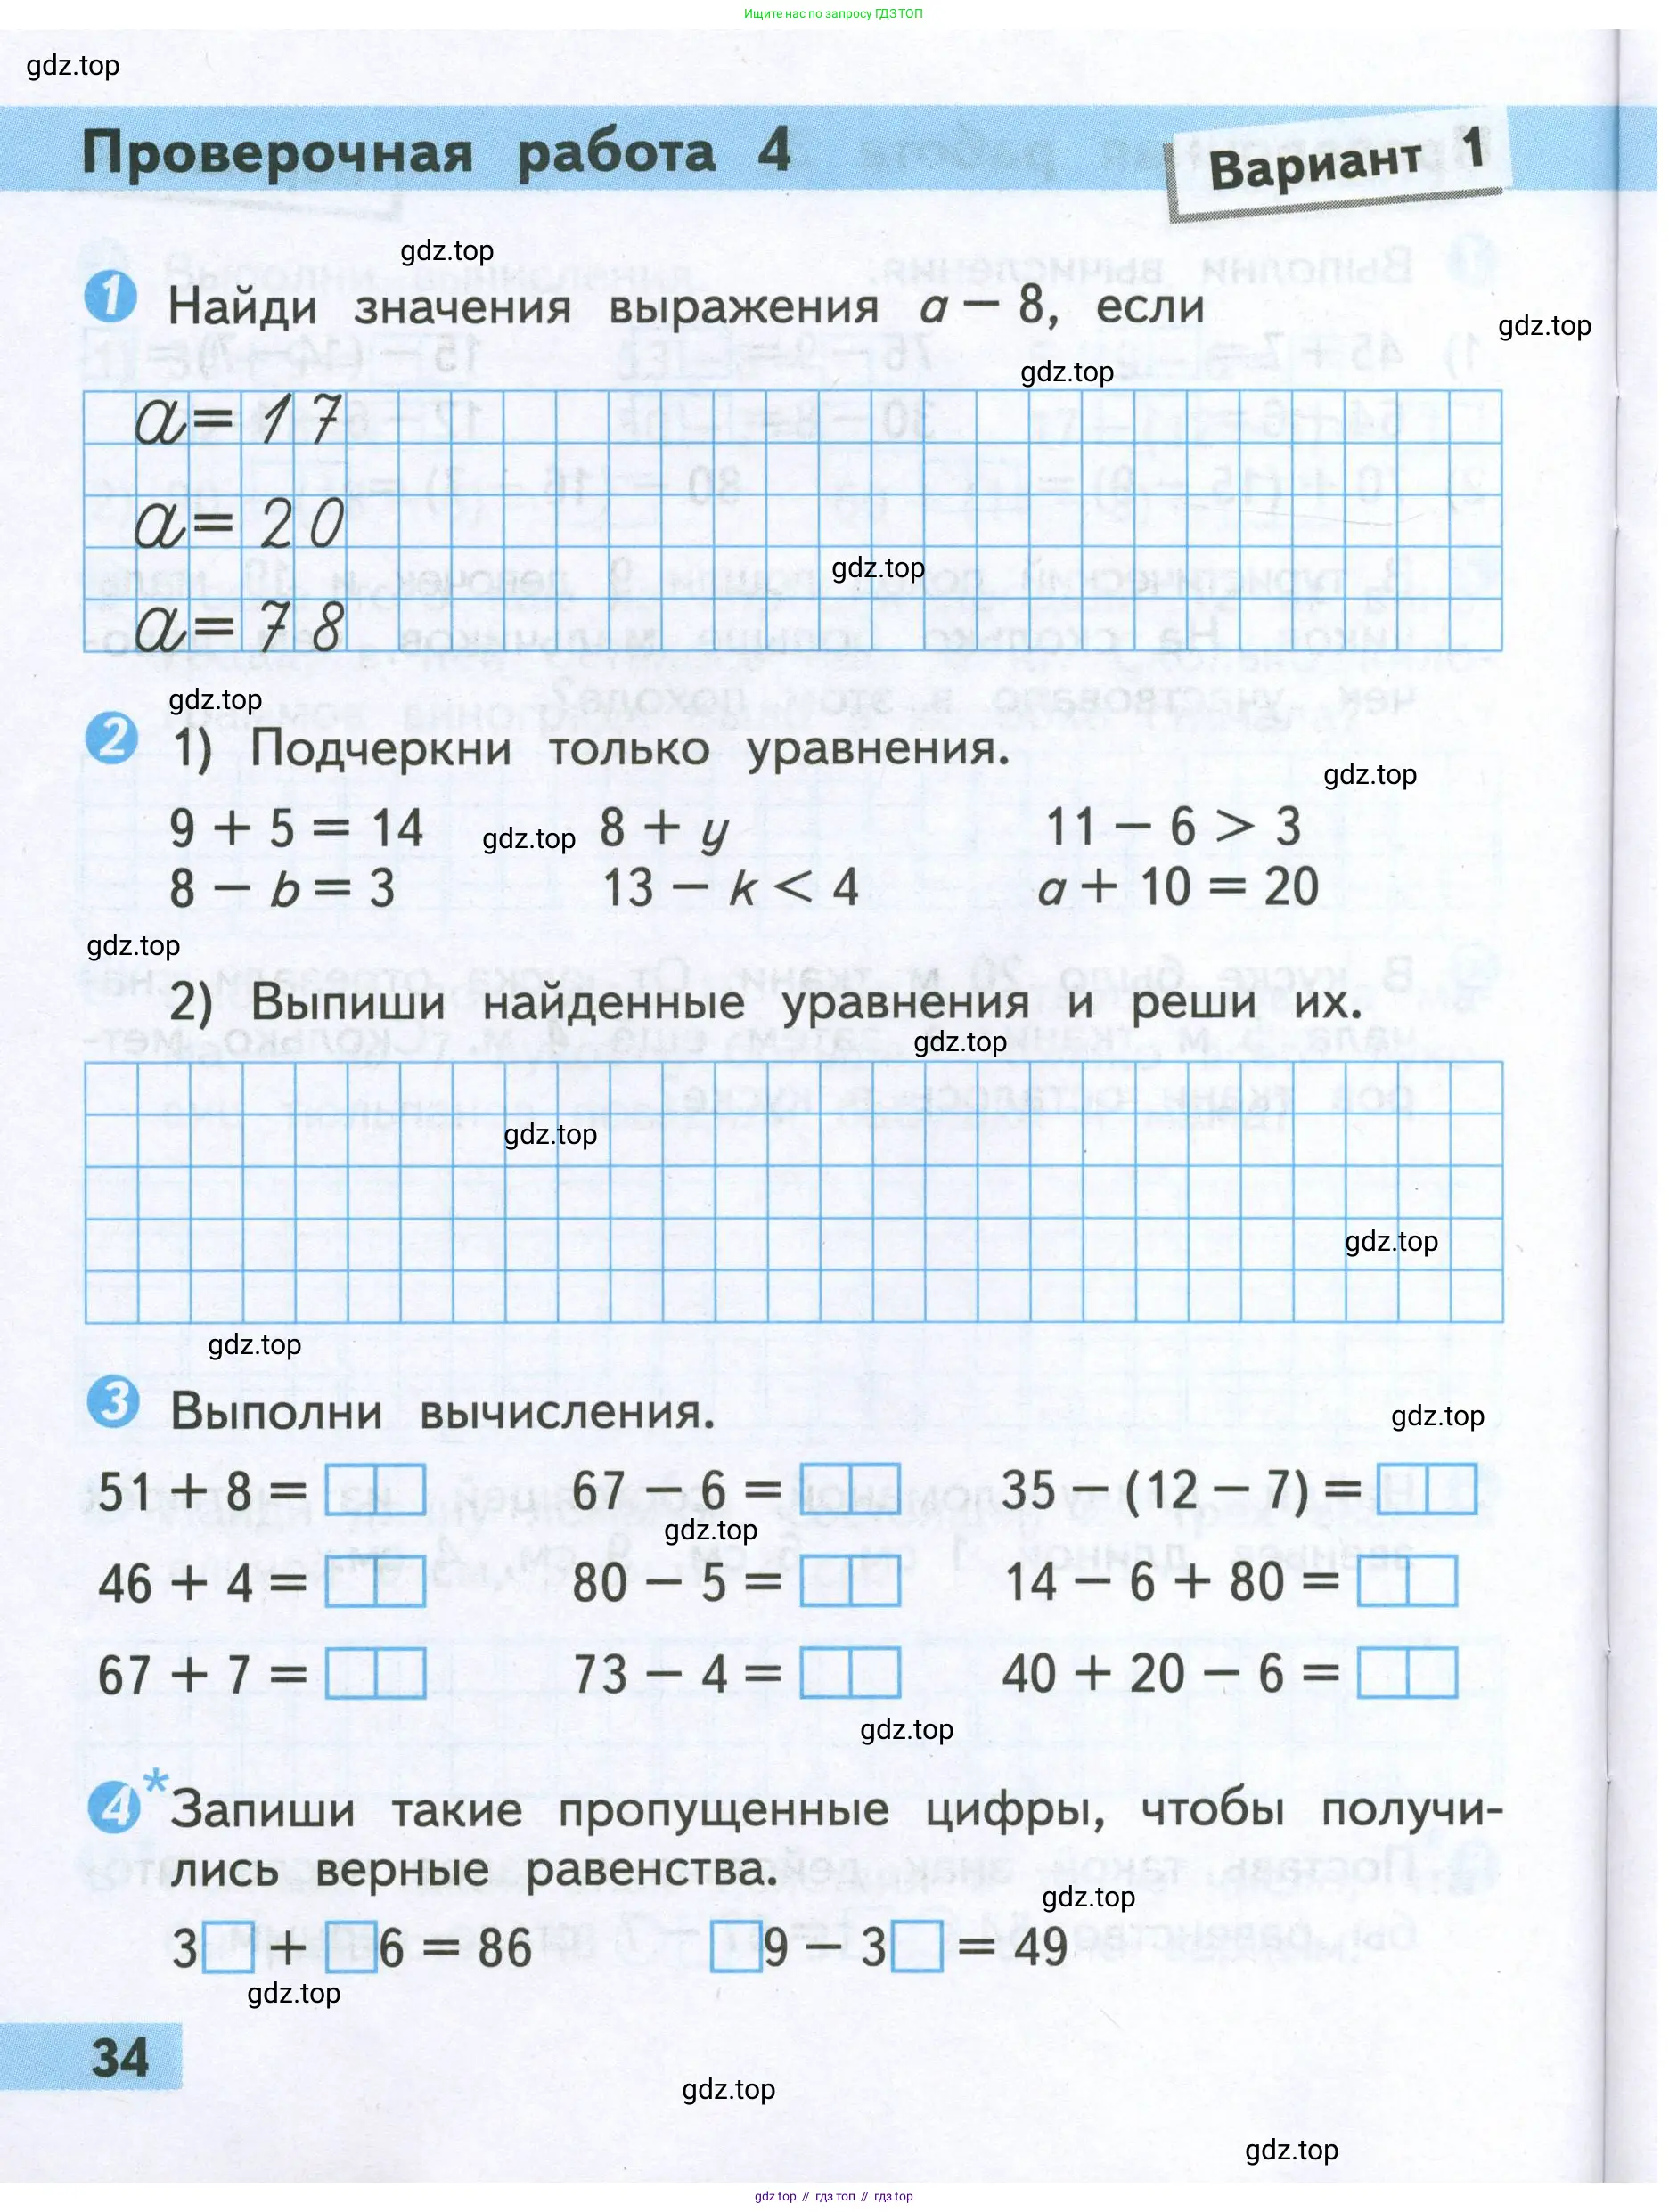 Ищите нас по запросу ГДЗ ТОП
gdz.top
Проверочная работа 4
Вариант 1
gdz.top
1 Найди значения выражения a − 8, если
gdz.top
gdz.top
a = 17
a = 20
gdz.top
a = 78
gdz.top
2 1) Подчеркни только уравнения.
gdz.top
9 + 5 = 14 gdz.top 8 + y 11 − 6 > 3
8 − b = 3 13 − k < 4 a + 10 = 20
gdz.top
2) Выпиши найденные уравнения и реши их.
gdz.top
gdz.top
gdz.top
gdz.top
3 Выполни вычисления.
gdz.top
51 + 8 = 67 − 6 = 35 − (12 − 7) =
gdz.top
46 + 4 = 80 − 5 = 14 − 6 + 80 =
67 + 7 = 73 − 4 = 40 + 20 − 6 =
gdz.top
4* Запиши такие пропущенные цифры, чтобы получи-
лись верные равенства.
gdz.top
3□ + □6 = 86 □9 − 3□ = 49
gdz.top
34
gdz.top
gdz.top
gdz top // гдз топ // гдз top